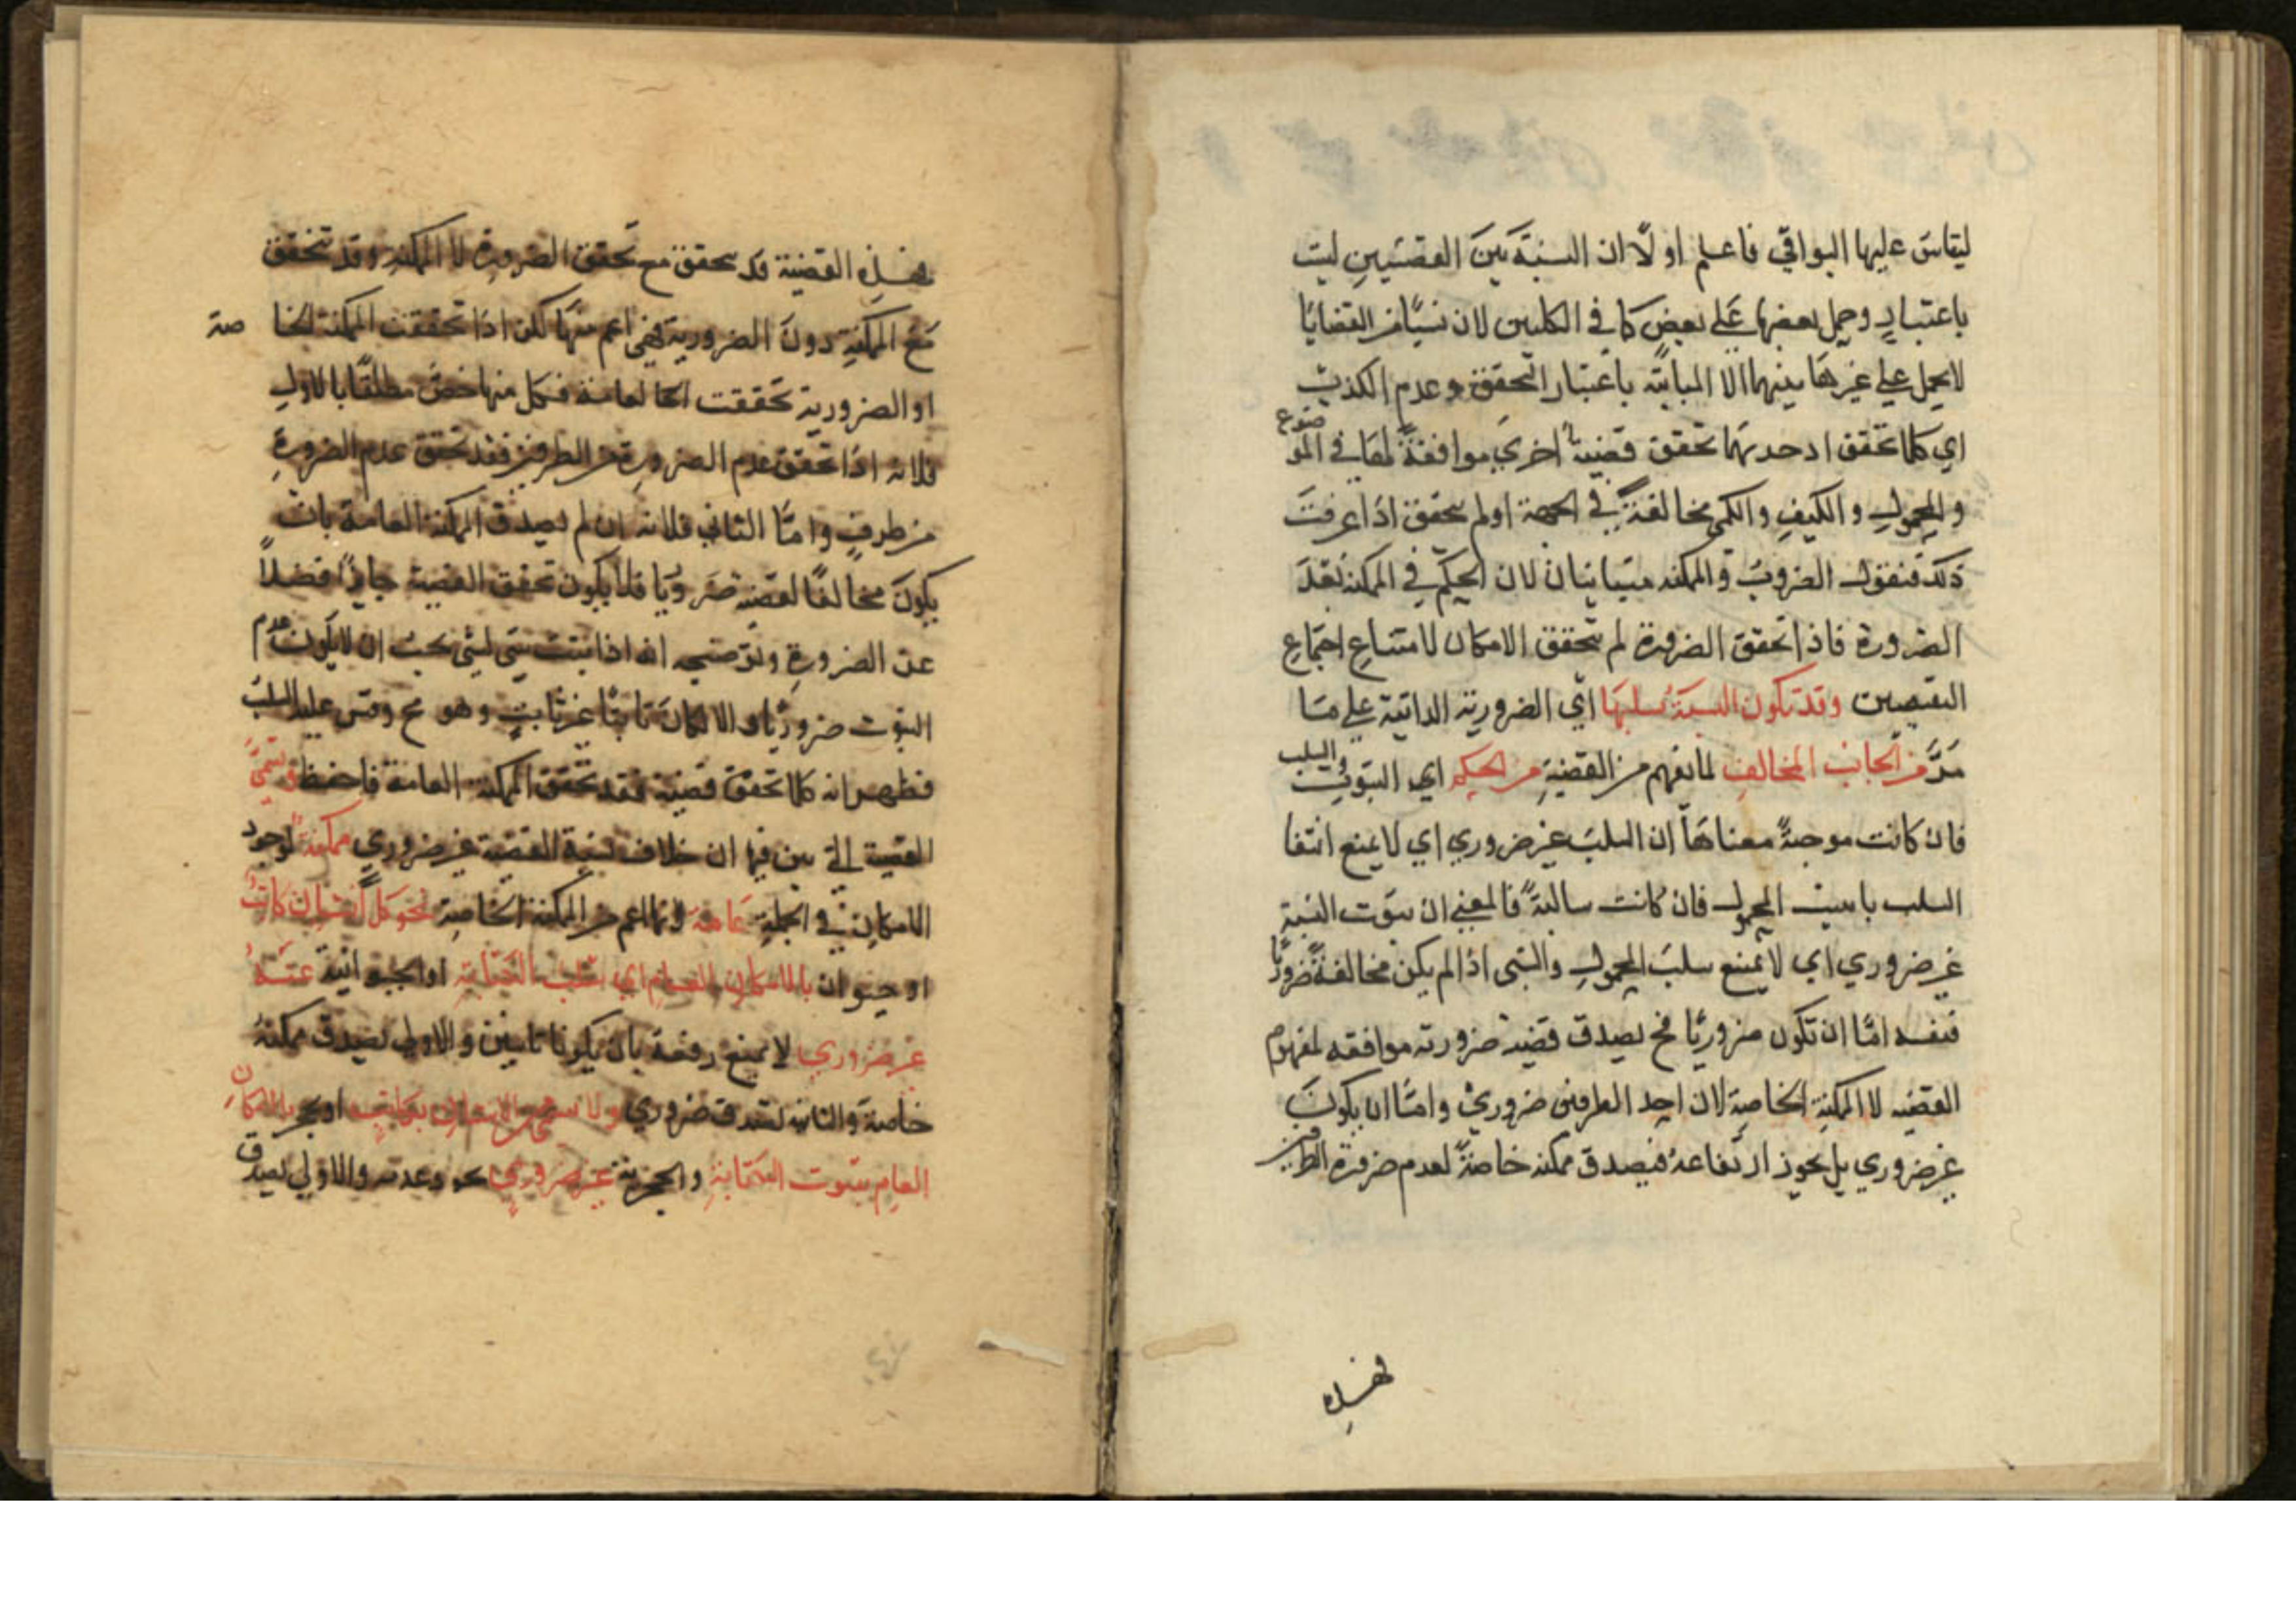 ليقاس عليها البواقي فاعلم اولًا ان النسبة بين القضيتين ليست
باعتبار وحمل بعضها على بعض كما في الكليين لان شيئًا من القضايا
لا يحمل على غيرها بينهما الا المباينة باعتبار التحقق وعدم الكذب
اي كلما تحقق احديهما تحقق قضية اخرى موافقة لها في الموضوع
والمحمول والكيف والكم مخالفة في الجهة اولم يتحقق اذا عرفت
ذلك فنقول الضرورية والممكنة متباينان لان الحكم في الممكنة بعدم
الضرورة فاذا تحقق الضرورة لم يتحقق الامكان لامتناع اجتماع
النقيضين وقد تكون النسبة بسلبها اي الضرورية الذاتية على ما
مَرَّ من الجانب المخالف لما يفهم من القضية من الحكم اي الثبوت والسلب
فان كانت موجبةً معناها ان السلب غير ضروري اي لا يمنع انتفا
السلب باثبت المحمول فان كانت سالبةً فالمعني ان ثبوت النسبة
غير ضروري اي لا يمنع سلب المحمول والشي اذا لم يكن مخالفة ضروريًا
فنفسه امّا ان تكون ضروريًا فح يصدق قضية ضرورية موافقه لمفهوم
القضيه لا الممكنة الخاصة لان احد الطرفين ضروري وامّا ان يكون
غير ضروري بل يجوز ارتفاعه فيصدق ممكنه خاصةً لعدم ضرورة الطرفين
فهذه
فهذه القضية قد يتحقق مع تحقق الضرورة لا الممكنة وقد تتحقق
مع الممكنة دون الضرورية فهي اعم منها لكن اذا تحققت الممكنة الخاصة
او الضرورية تحققت العامة فكل منها اخص مطلقًا بالاول
فلانه اذا تحقق عدم الضرورة من الطرفين فقد تحقق عدم الضرورة
من طرف وامّا الثاني فلانه ان لم يصدق الممكنة العامة بان
يكون مخالفًا لقضية ضروريا فلا يكون تحقق القضية جايزًا فضلاً
عن الضرورة وتوضيحه انه اذا ثبتت شي لشي يجب ان لا يكون عدم
الثبوت ضروريًا والا لكان ثابتًا غير ثابت وهو مح وقس عليه السلب
فظهر انه كلما تحقق قضية فقد تحقق الممكنة العامة فاحفظه وتسمى
القضية التي بين فيها ان خلاف نسبة القضية غير ضروري ممكنة لوجود
الامكان في الجملة عامة وانها اعم من الممكنة الخاصة نحو كل انسان كاتب
او حيوان بالامكان العام اي سلب الكتابة او الحيوانية عنه
غير ضروري لا يمنع رفعه بان يكونا ثابتين والاول يصدق ممكنة
خاصة والثانية لصدق ضروري ولا شي من الانسان بكاتب او بحجر بالامكان
العام ثبوت الكتابة والحجرية غير ضروري وعدمه والاولى يصدق